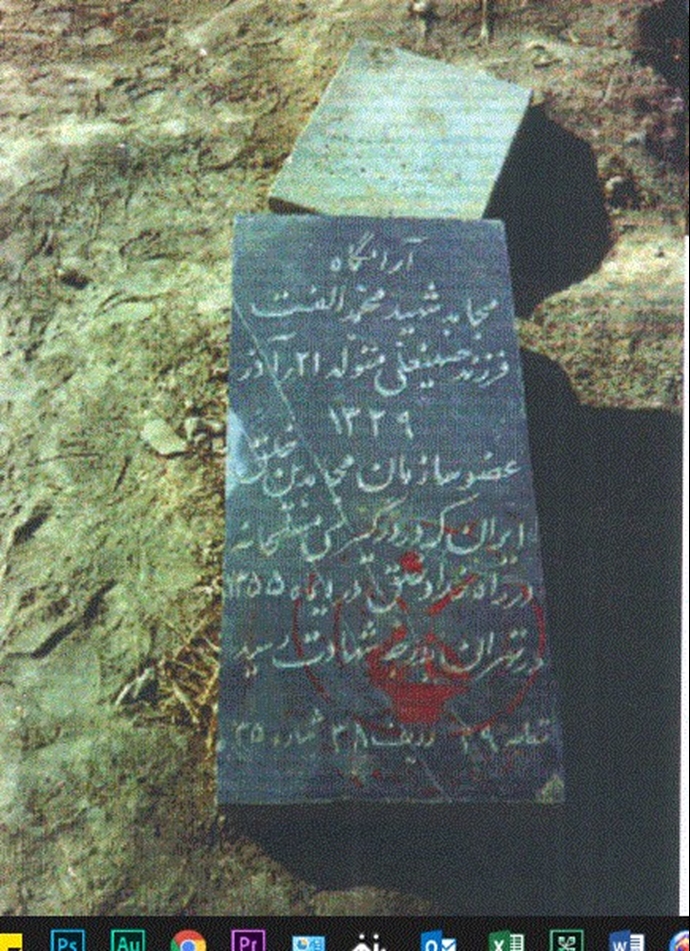 آرامگاه
مجاهد شهید محمد الفت
فرزند حسینعلی متولد ۲۱ آذر
۱۳۲۹
عضو سازمان مجاهدین خلق
ایران که در درگیری مسلحانه
در راه خدا و خلق در ماه ۱۳۵۵
در تهران بدرجه شهادت رسید
قطعه ۳۹ ردیف ۳۸ شماره ۳۵
Ps Au Pr